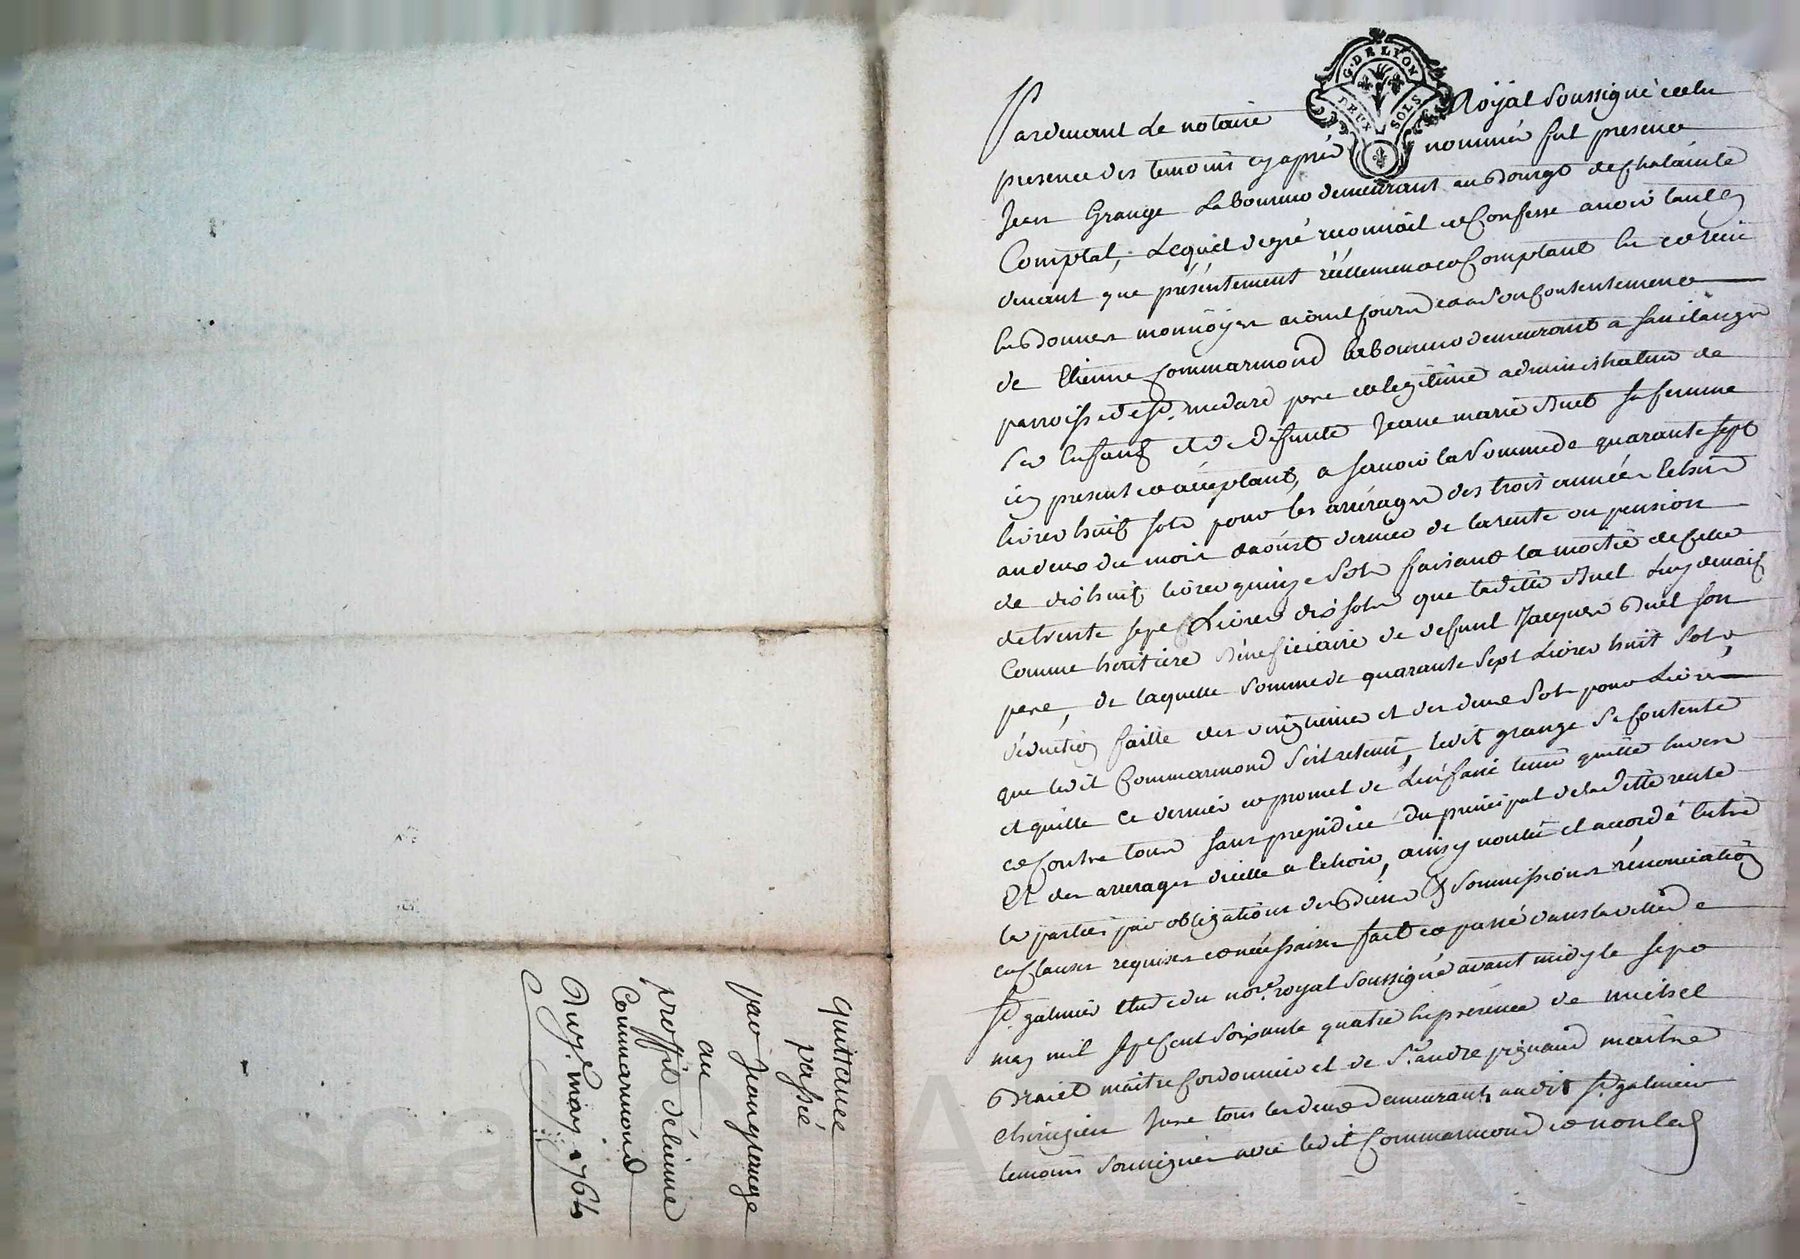 G. DE LYON
DEUX SOLS
Pardevant le notaire Royal soussigné et en
presence des temoins cy aprés nommés fut present
Jean Grange Laboureur demeurant au Bourg de Chalain le
Comptal, Lequel de gré reconnoit et Confesse avoir tant cy
devant que présentement réellement et Comptant eu et receu
en Bonnes monnoyes aiant cours et a son Contentement
de Etienne Commarmond laboureur demeurant a
parroisse de St. medard pere et legitime administrateur de
ses Enfans et de defunte Jeane marie Buet sa femme
icy present et acceptant, a scavoir la somme de quarante sept
livres huit sols pour les arrérages des trois années échus
au deux du mois daoust dernier de la rente ou pension
de dixhuit livres quinze sols faisant la moitié de celle
de trente sept Livres dix sols que laditte Buet Luy devait
Comme heritiere Béneficiaire de defunt Jacques Buet son
pere, de laquelle somme de quarante sept Livres huit sols,
déduction faitte des vingtiemes et des deux sols pour Livre
que ledit Commarmond s'est retenu, ledit grange se Contente
et quitte Ce dernier et promet de L'en faire tenir quitte envers
et Contre tous sans prejudice du principal de laditte rente
Et des arrerages dicelle a échoir, ainsy voulu et accordé entre
les parties par obligations de Biens soumissions rénonciations
et Clauses requises et nécessaires fait et passé dans la ville de
St. galmier etude du nore. royal soussigné avant midy le sept
may mil sept Cent soixante quatre en présence de michel
maitre Cordonnier et de Sr. andré pignaud maitre
Chirurgien Juré tous les deux demeurants audit St. galmier
temoins soussignés avec ledit Commarmond et non led
quittance
passée
par Jean grange
au
proffit d'étienne
Commarmond
Du 7e. may 1764